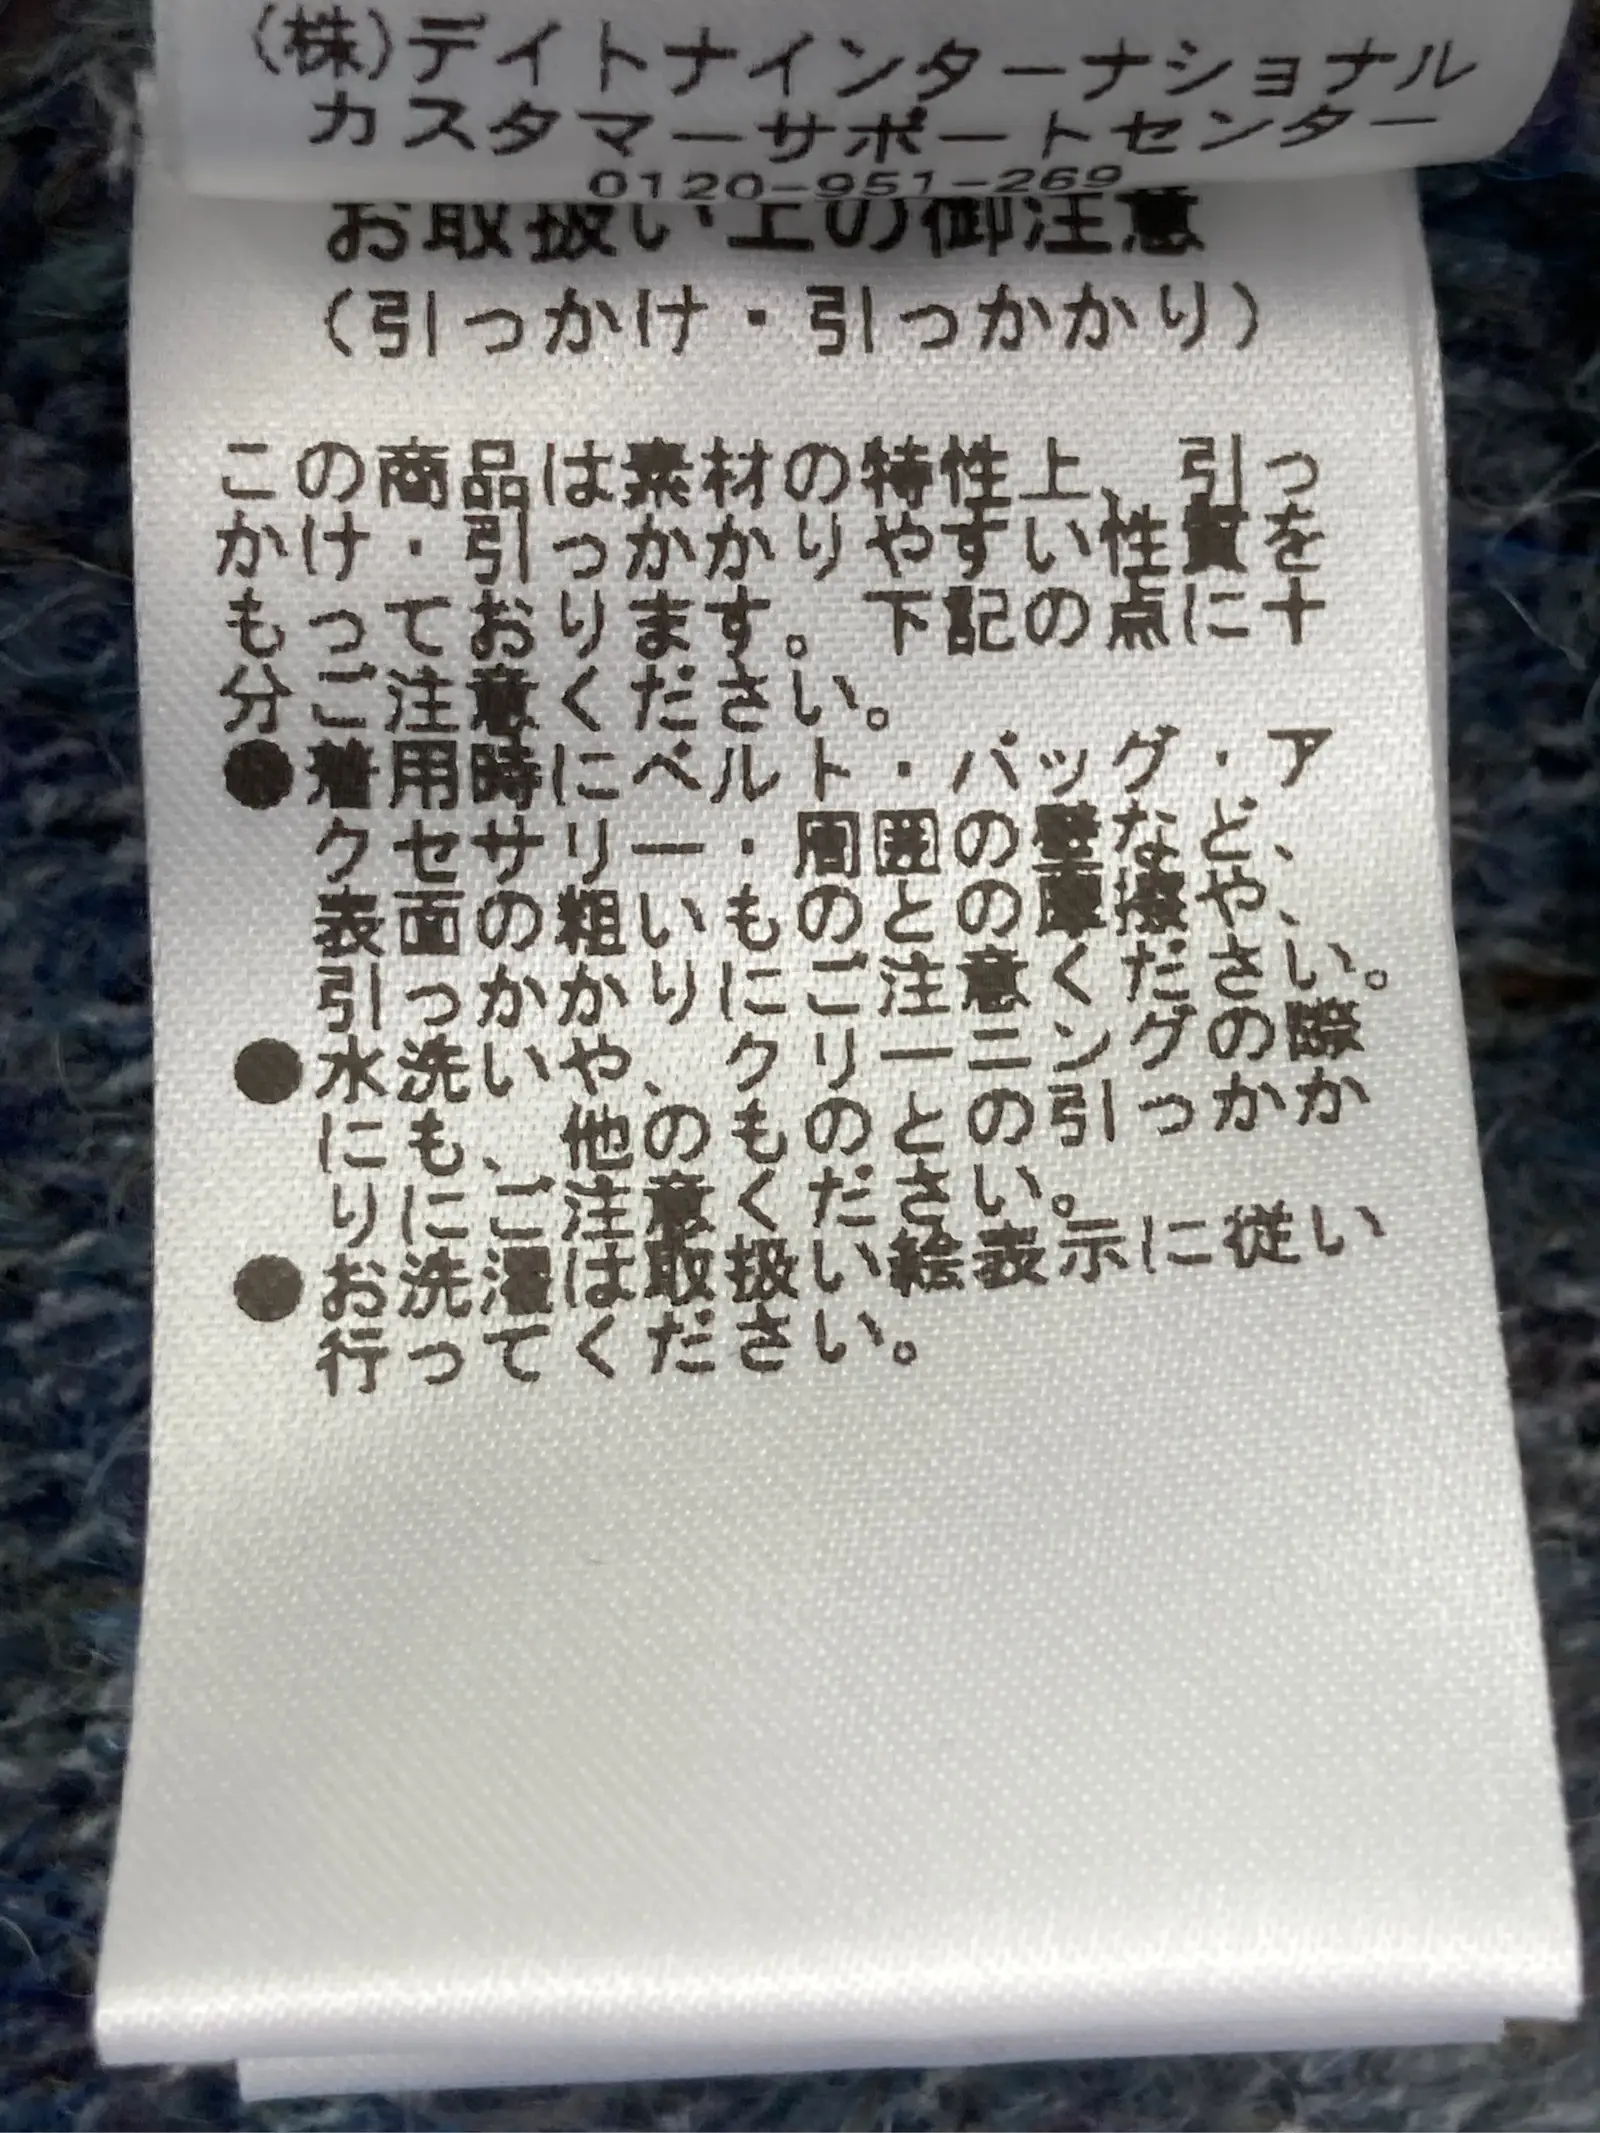 (株)デイトナインターナショナル
カスタマーサポートセンター
0120-951-269
お取扱い上の御注意
(引っかけ・引っかかり)
この商品は素材の特性上、引っ
かけ・引っかかりやすい性質を
もっております。下記の点に十
分ご注意ください。
●着用時にベルト・バッグ・ア
クセサリー・周囲の壁など、
表面の粗いものとの摩擦や、
引っかかりにご注意ください。
●水洗いや、クリーニングの際
にも、他のものとの引っかか
りにご注意ください。
●お洗濯は取扱い絵表示に従い
行ってください。